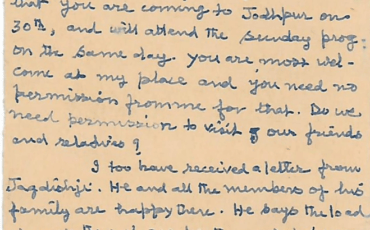 that you are coming to Jodhpur on
30th, and will attend the Sunday prog-
on the same day. You are most wel-
come at my place and you need no
permission from me for that. Do we
need permission to visit our friends
and relatives?
I too have received a letter from
Jagdishji. He and all the members of his
family are happy there. He says the load